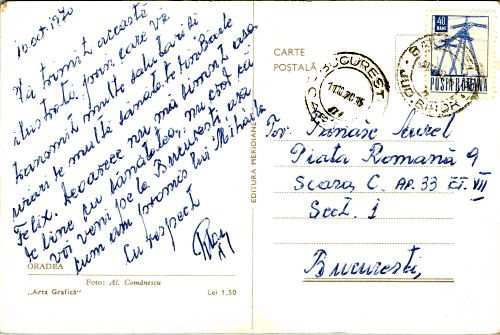 10 oct. 1970
Vă trimit această
ilustrată prin care vă
transmit multe salutări și
urări de multă sănătate din Baile
Felix. Deoarece nu mă simt așa
de bine cu sănătatea, nu cred că
voi veni pe la București așa
cum am promis lui Mihai
Cu respect
ORADEA
Foto: Al. Comănescu
„Arta Grafică"
Lei 1,50
EDITURA MERIDIANE
CARTE
POȘTALĂ
BUCUREȘTI
40
BANI
POSTA ROMANA
JUD. BIHOR
Tov. Panasc Aurel
Piața Romană 9
Scara C, AP. 33 ET. VII
Sect. 1
București,